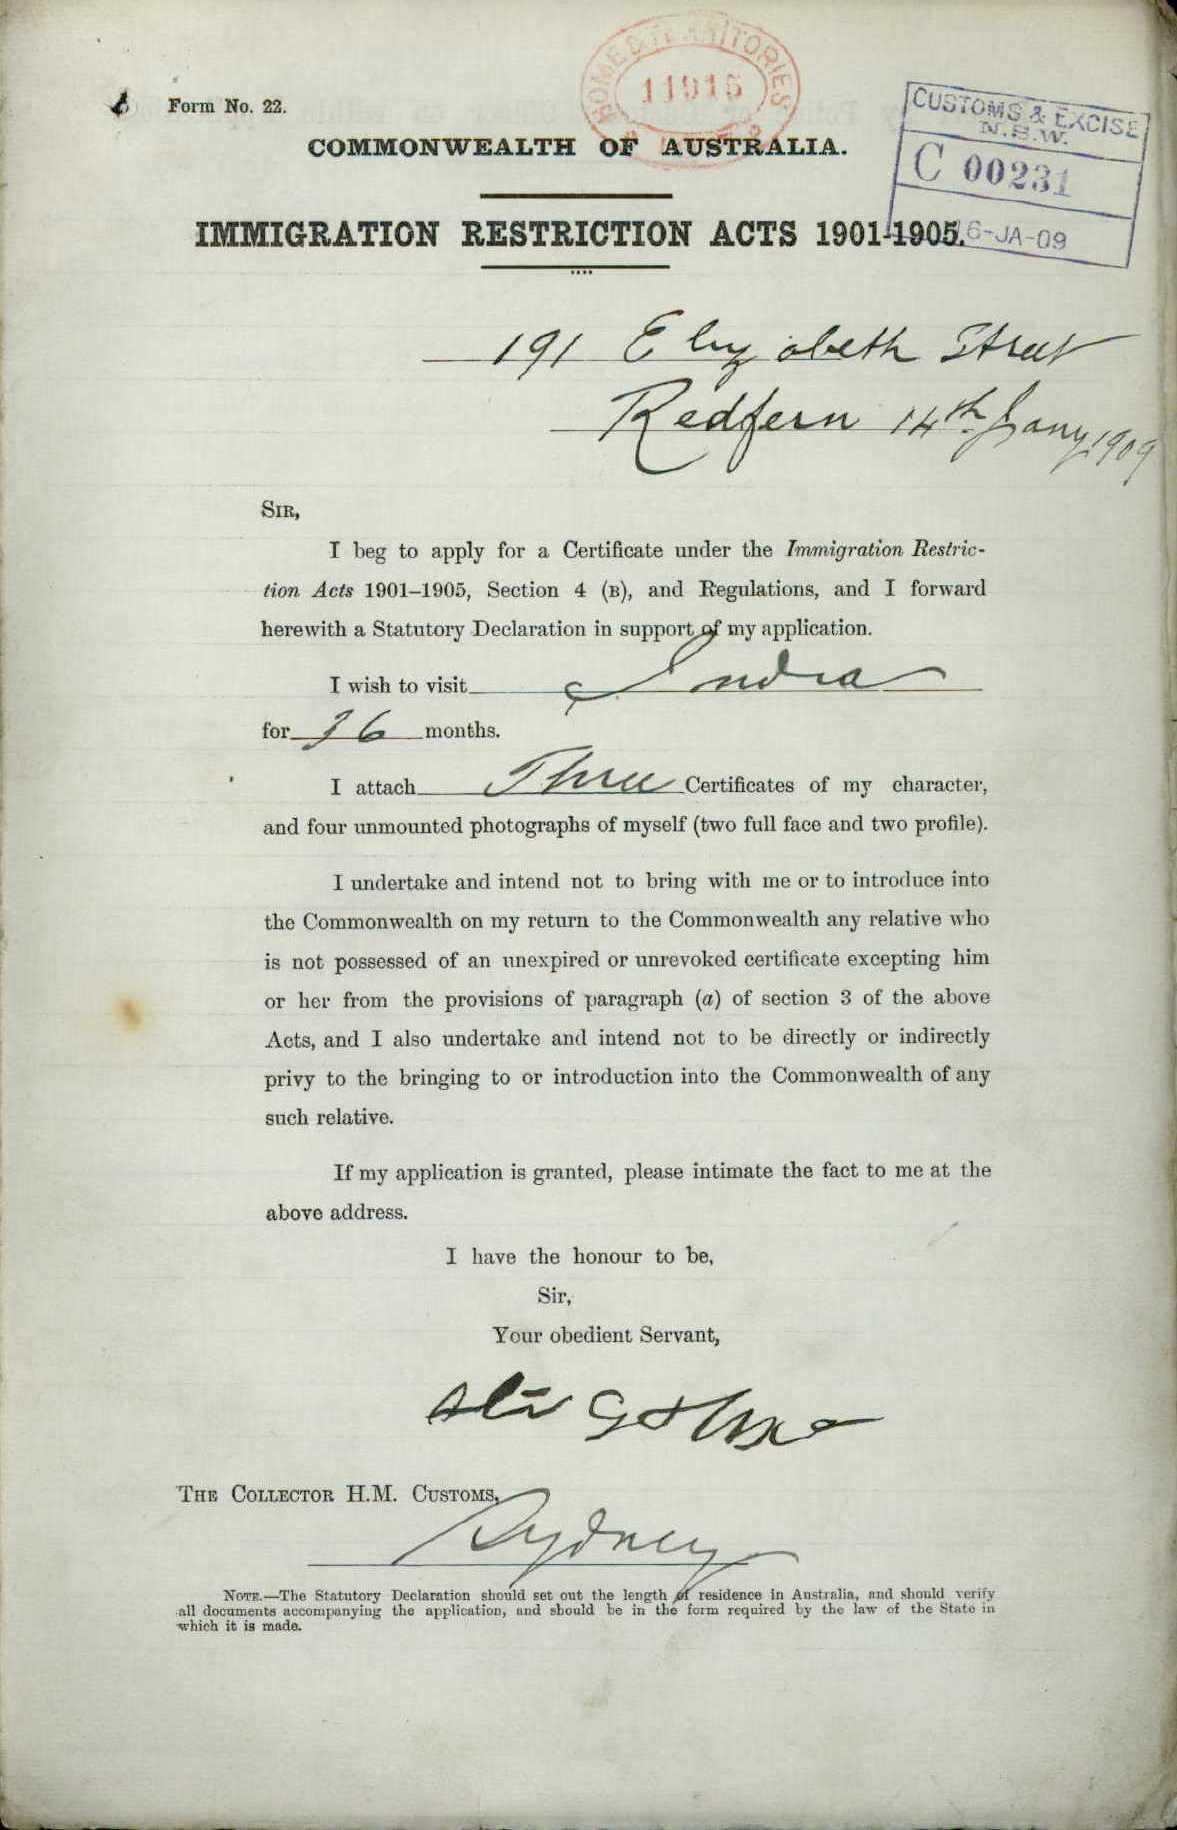 HOME & TERRITORIES
11915
Form No. 22.
CUSTOMS & EXCISE
N.S.W.
C 00231
16-JA-09
COMMONWEALTH OF AUSTRALIA.
IMMIGRATION RESTRICTION ACTS 1901-1905.
191 Elizabeth Street
Redfern 14th Jany 1909
SIR,
I beg to apply for a Certificate under the Immigration Restric-
tion Acts 1901–1905, Section 4 (B), and Regulations, and I forward
herewith a Statutory Declaration in support of my application.
I wish to visit India
for 36 months.
I attach Three Certificates of my character,
and four unmounted photographs of myself (two full face and two profile).
I undertake and intend not to bring with me or to introduce into
the Commonwealth on my return to the Commonwealth any relative who
is not possessed of an unexpired or unrevoked certificate excepting him
or her from the provisions of paragraph (a) of section 3 of the above
Acts, and I also undertake and intend not to be directly or indirectly
privy to the bringing to or introduction into the Commonwealth of any
such relative.
If my application is granted, please intimate the fact to me at the
above address.
I have the honour to be,
Sir,
Your obedient Servant,
THE COLLECTOR H.M. CUSTOMS,
Sydney
NOTE.—The Statutory Declaration should set out the length of residence in Australia, and should verify
all documents accompanying the application, and should be in the form required by the law of the State in
which it is made.